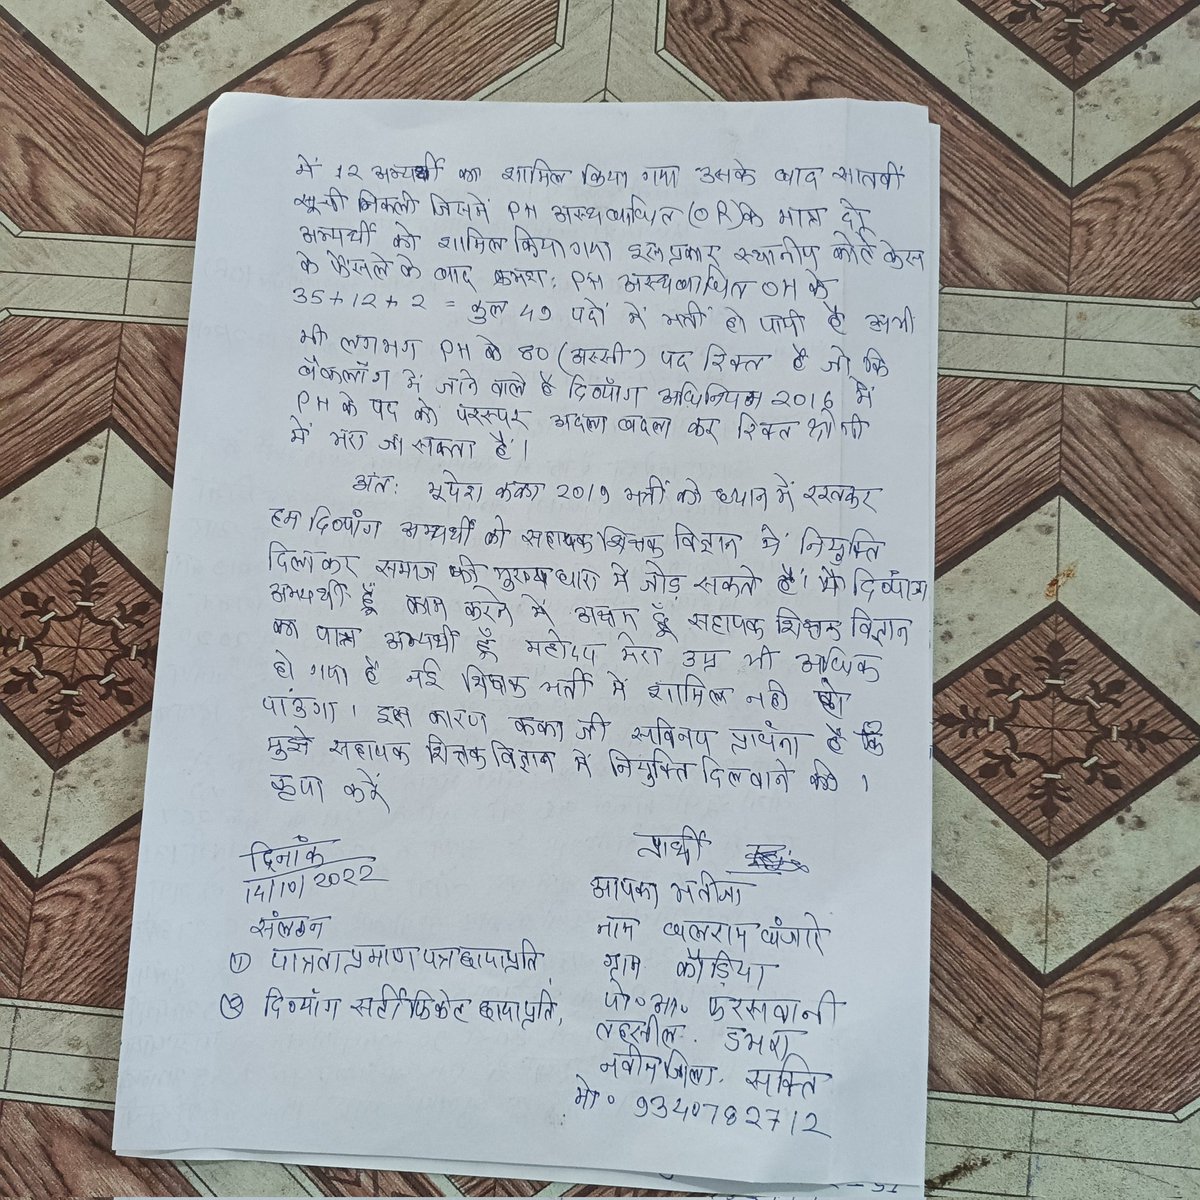 में 12 अभ्यर्थी का शामिल किया गया उसके बाद सातवीं
सूची निकली जिसमें PH अस्थिबाधित (OR) के मात्र दो
अभ्यर्थी को शामिल किया गया इस प्रकार स्थानीय कोर्ट केस
के फैसले के बाद क्रमशः PH अस्थिबाधित OH के
35+12+2 = कुल 49 पदों में भर्ती हो पायी है अभी
भी लगभग PH के 80 (अस्सी) पद रिक्त है जो कि
बैकलॉग में जाने वाले है दिव्याँग अधिनियम 2016 में
PH के पद को परस्पर अदला बदला कर रिक्त श्रेणी
में भरा जा सकता है।
अंतः भूपेश कका 2019 भर्ती को ध्यान में रखकर
हम दिव्याँग अभ्यर्थी को सहायक शिक्षक विज्ञान में नियुक्ति
दिलाकर समाज की मुख्य धारा में जोड़ सकते है। मैं दिव्याँग
अभ्यर्थी हूँ काम करने में अक्षम हूँ सहायक शिक्षक विज्ञान
का पात्र अभ्यर्थी हूँ महोदय मेरा उम्र भी अधिक
हो गया है नई शिक्षक भर्ती में शामिल नही हो
पाउंगा। इस कारण कका जी सविनय प्रार्थना है कि
मुझे सहायक शिक्षक विज्ञान में नियुक्ति दिलवाने की।
कृपा करें
दिनाँक
14/10/2022
संलग्न
① पात्रता प्रमाण पत्र छायाप्रति
② दिव्याँग सर्टीफिकेट छायाप्रति,
प्रार्थी
आपका भतीजा
नाम बलराम बंजारे
ग्राम कौड़िया
पो॰आ॰ फरसवानी
तहसील. डभरा
नवीन जिला. सक्ति
मो॰ 9340782712